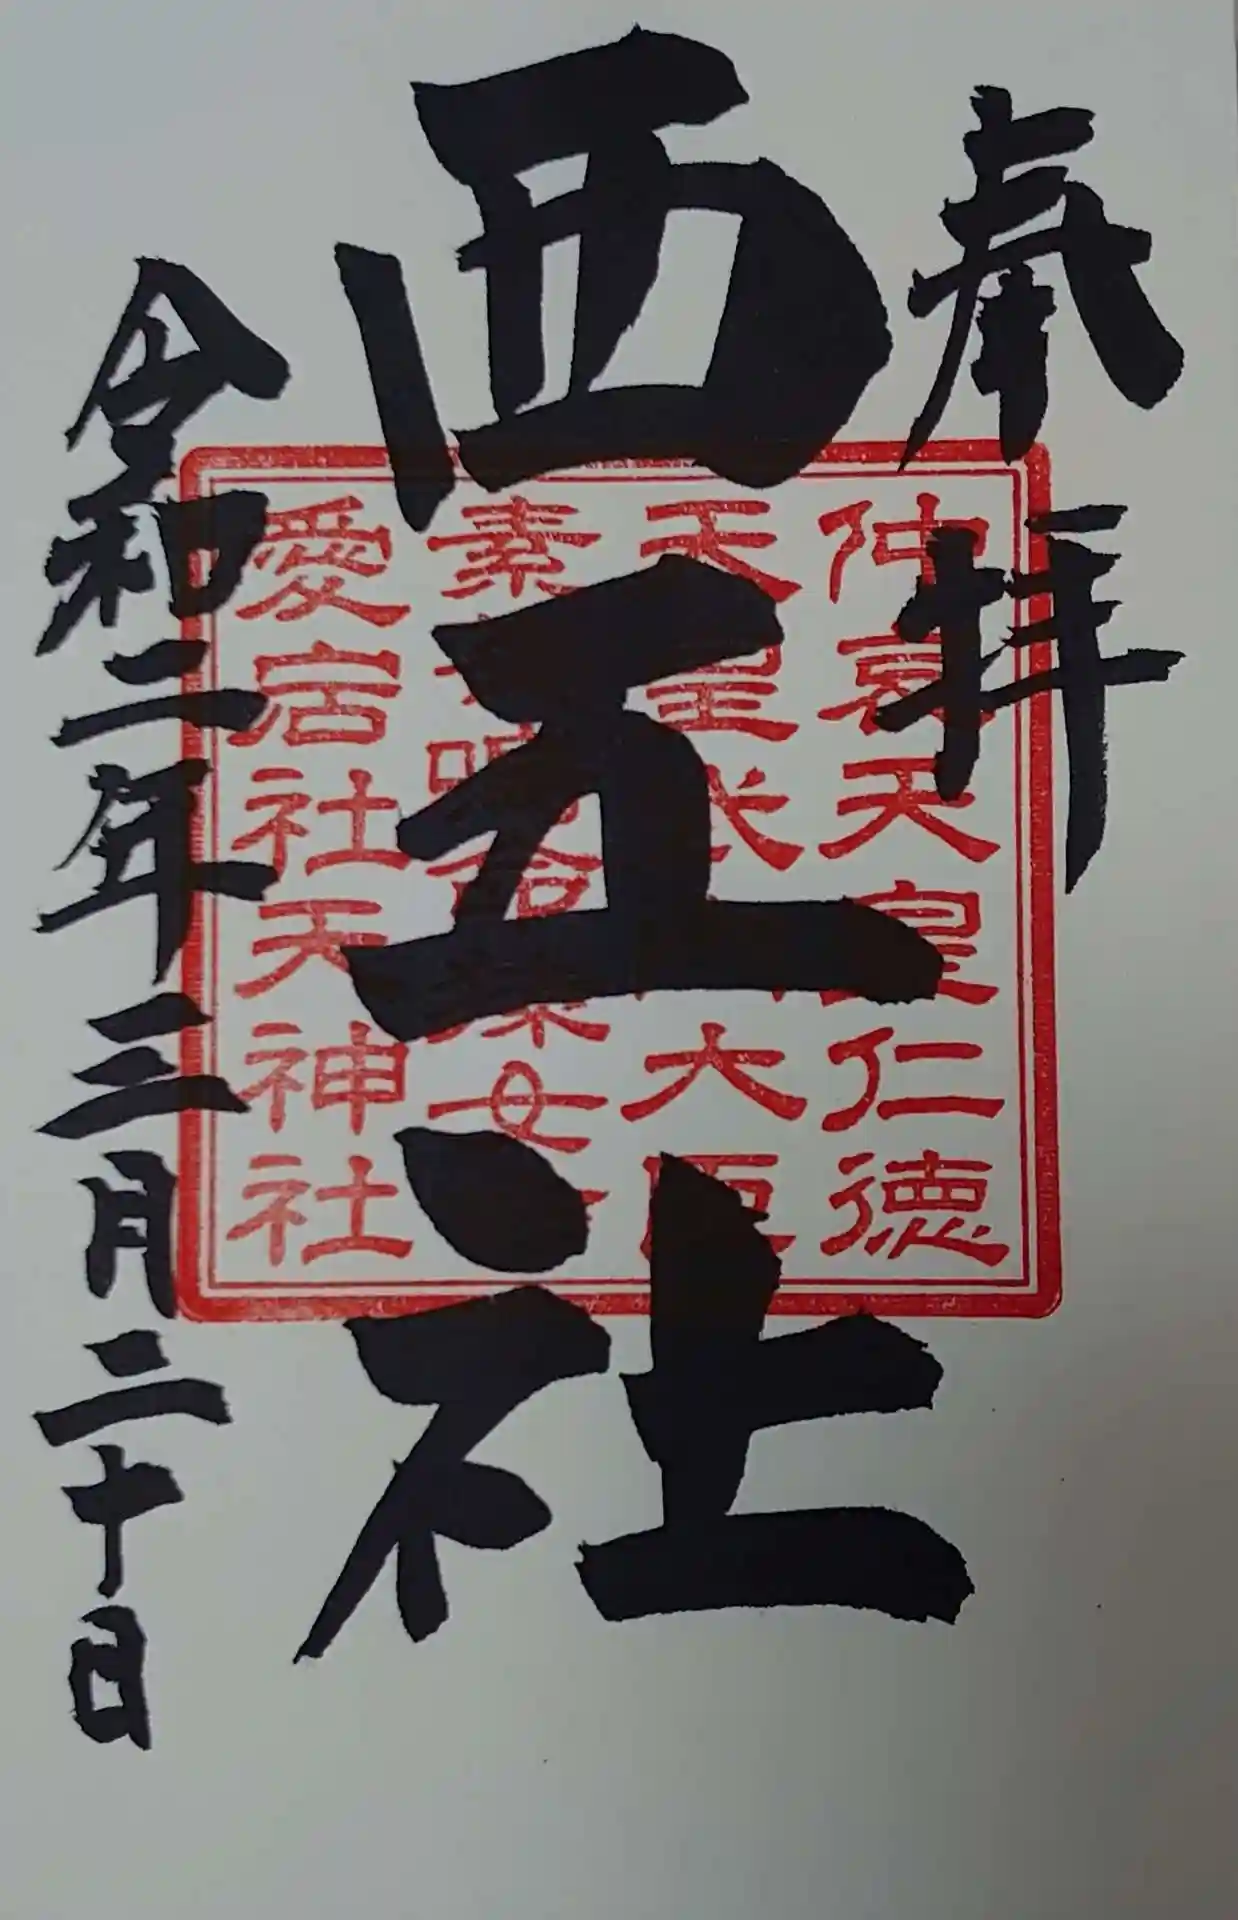 奉拝
西五社
令和二年三月二十日
仲哀天皇仁徳
天皇武内大臣
素盞嗚命栗女
愛宕社天神社